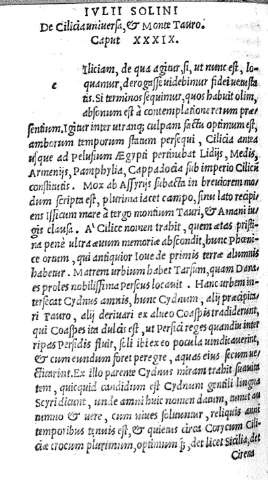 IVLII SOLINI
De Cilicia universa, & Monte Tauro.
Caput XXXIX.
c
Iliciam, de qua agitur, si, ut nunc est, lo-
quamur, derogasse videbimur fidei vetusta
tis. Si terminos sequimur, quos habuit olim,
absonum est à contemplatione rerum præ-
sentium. Igitur inter utranq; culpam factu optimum est,
amborum temporum statum persequi, Cilicia antea
usque ad Pelusium Ægypti pertinebat Lidijs, Medis,
Armenijs, Pamphylia, Cappadocia sub imperio Cilicū
constitutis. Mox ab Assyrijs subacta in breviorem mo-
dum scripta est, plurima iacet campo, sinu lato recipi
ens Issicum mare à tergo montium Tauri, & Amani iu
gis clausa. A' Cilice nomen trahit, quem ætas pristi
na penè ultra æuum memoriæ abscondit, hunc Phœni-
ce ortum, qui antiquior Ioue de primis terræ alumnis
habetur. Matrem urbium habet Tarson, quam Dana-
es proles nobilissima Perseus locavit. Hanc urbem in-
tersecat Cydnus amnis, hunc Cydnum, alij præcipita
ri Tauro, alij derivari ex alueo Coaspis tradiderunt,
qui Coaspes ita dulcis est, ut Persici reges quandiu inter
ripas Persidis fluit, soli ibi ex eo pocula vindicaverint,
& cum eundum foret peregre, aquas eius secum ve-
ctitarint. Ex illo parente Cydnus miram trahit suavita
tem, quicquid candidum est Cydnum gentili lingua
Syri dicunt, unde amni huic nomen datum,
numo & vere, cum nives soluuntur, reliquis anni
temporibus tenuis est, & quietus circa Corycum Cili-
ciæ crocum plurimum, optimum q;, det licet Sicilia, det
Cirena